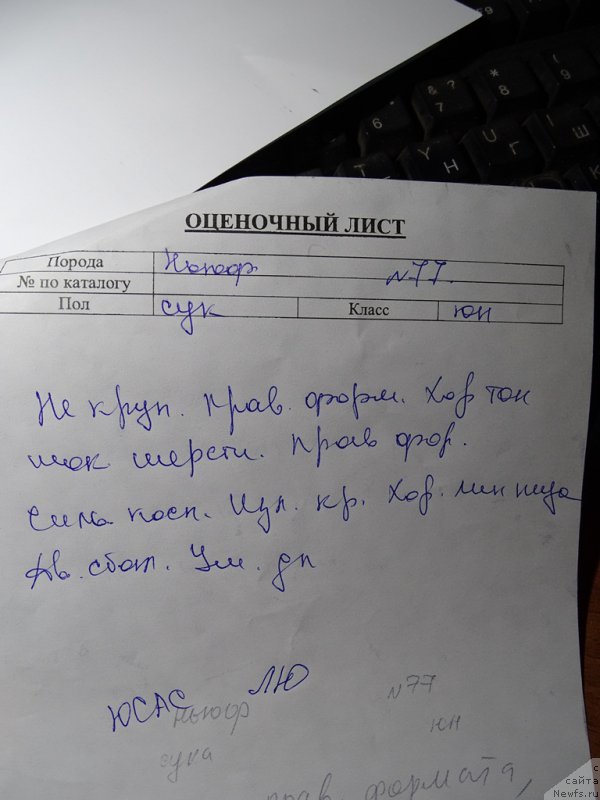 6 & 7 ? * 8 ( 9
T Y Н U Г I Ш
ОЦЕНОЧНЫЙ ЛИСТ
Порода Ньюф №77.
№ по каталогу
Пол сук Класс юн
Не круп. Прав. форм. Хор тон
шок шерсти. Прав фор.
Сила косп. Изл. кр. Хор. лин
Дв. сбал. Ум. дл
ЮСАС ЛЮ
Ньюф №77
юн
сука
прав. формата,
с
сайта
Newfs.ru